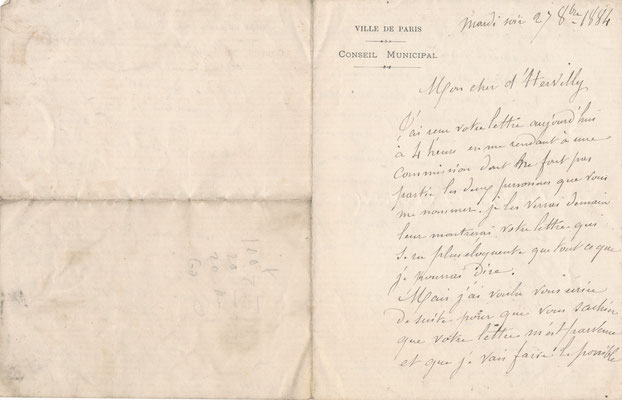 mardi soir 27 8bre 1884
VILLE DE PARIS
CONSEIL MUNICIPAL
Mon cher d'Hervilly
J'ai reçu votre lettre aujourd'hui
à 4 heures en me rendant à une
Commission dont ne font pas
partie les deux personnes que vous
me nommez. je les verrai demain
leur montrerai votre lettre qui
sera plus éloquente que tout ce que
je pourrai dire.
Mais j'ai voulu vous écrire
de suite pour que vous sachiez
que votre lettre m'est parvenue
et que je vais faire le possible